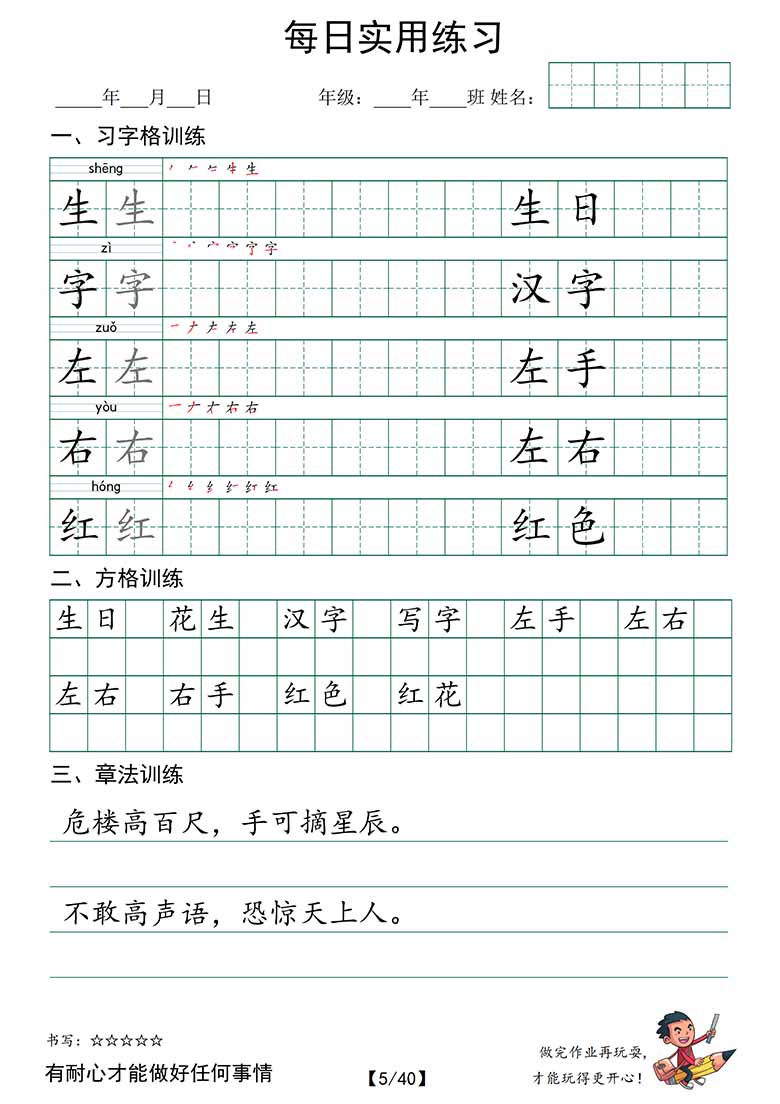 每日实用练习
_____年___月___日 年级：____年____班 姓名：
一、习字格训练
shēng
生 生 生 日
zì
字 字 汉 字
zuǒ
左 左 左 手
yòu
右 右 左 右
hóng
红 红 红 色
二、方格训练
生日 花生 汉字 写字 左手 左右
左右 右手 红色 红花
三、章法训练
危楼高百尺，手可摘星辰。
不敢高声语，恐惊天上人。
书写：☆☆☆☆☆
有耐心才能做好任何事情
【5/40】
做完作业再玩耍，
才能玩得更开心！